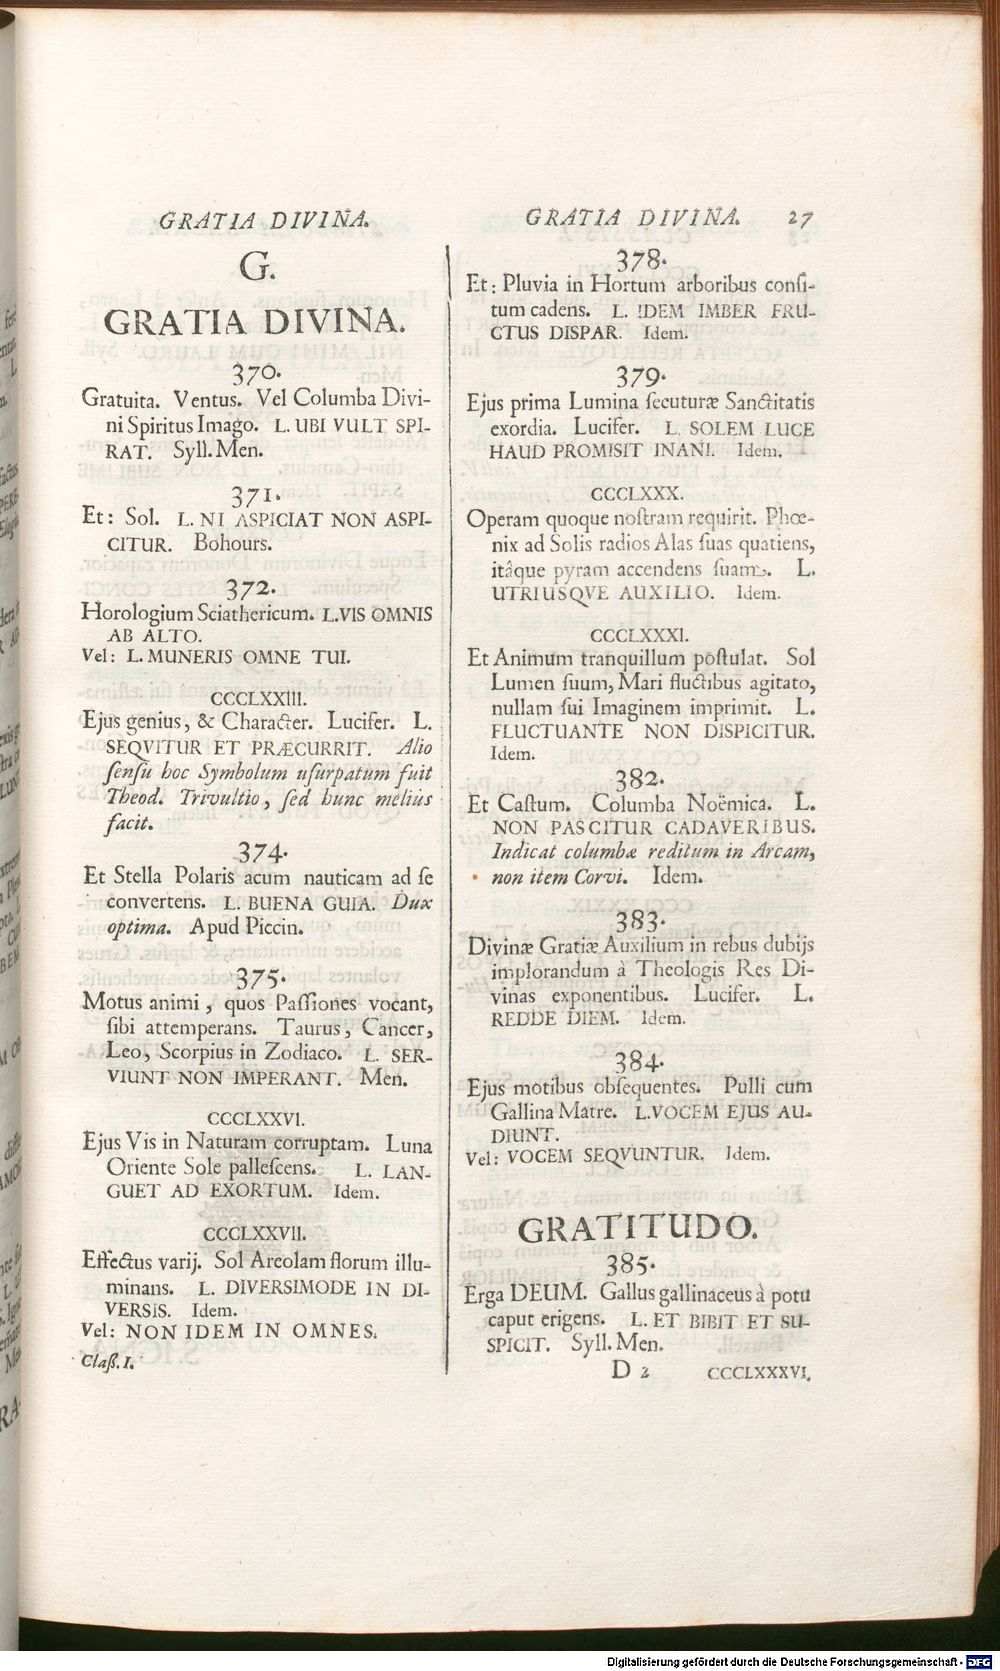 GRATIA DIVINA.
G.
GRATIA DIVINA.
370.
Gratuita. Ventus. Vel Columba Divi-
ni Spiritus Imago. L. UBI VULT SPI-
RAT. Syll. Men.
371.
Et: Sol. L. NI ASPICIAT NON ASPI-
CITUR. Bohours.
372.
Horologium Sciathericum. L. VIS OMNIS
AB ALTO.
Vel: L. MUNERIS OMNE TUI.
CCCLXXIII.
Ejus genius, & Character. Lucifer. L.
SEQVITUR ET PRÆCURRIT. Alio
ſenſu hoc Symbolum uſurpatum fuit
Theod. Trivultio, ſed hunc meliùs
facit.
374.
Et Stella Polaris acum nauticam ad ſe
convertens. L. BUENA GUIA. Dux
optima. Apud Piccin.
375.
Motus animi, quos Paſſiones vocant,
ſibi attemperans. Taurus, Cancer,
Leo, Scorpius in Zodiaco. L. SER-
VIUNT NON IMPERANT. Men.
CCCLXXVI.
Ejus Vis in Naturam corruptam. Luna
Oriente Sole palleſcens. L. LAN-
GUET AD EXORTUM. Idem.
CCCLXXVII.
Effectus varij. Sol Areolam florum illu-
minans. L. DIVERSIMODE IN DI-
VERSIS. Idem.
Vel: NON IDEM IN OMNES.
Claß. I.
GRATIA DIVINA. 27
378.
Et: Pluvia in Hortum arboribus conſi-
tum cadens. L. IDEM IMBER FRU-
CTUS DISPAR. Idem.
379.
Ejus prima Lumina ſecuturæ Sanctitatis
exordia. Lucifer. L. SOLEM LUCE
HAUD PROMISIT INANI. Idem.
CCCLXXX.
Operam quoque noſtram requirit. Phœ-
nix ad Solis radios Alas ſuas quatiens,
itâque pyram accendens ſuam. L.
UTRIUSQVE AUXILIO. Idem.
CCCLXXXI.
Et Animum tranquillum poſtulat. Sol
Lumen ſuum, Mari fluctibus agitato,
nullam ſui Imaginem imprimit. L.
FLUCTUANTE NON DISPICITUR.
Idem.
382.
Et Caſtum. Columba Noëmica. L.
NON PASCITUR CADAVERIBUS.
Indicat columbæ reditum in Arcam,
non item Corvi. Idem.
383.
Divinæ Gratiæ Auxilium in rebus dubijs
implorandum à Theologis Res Di-
vinas exponentibus. Lucifer. L.
REDDE DIEM. Idem.
384.
Ejus motibus obſequentes. Pulli cum
Gallina Matre. L. VOCEM EJUS AU-
DIUNT.
Vel: VOCEM SEQVUNTUR. Idem.
GRATITUDO.
385.
Erga DEUM. Gallus gallinaceus à potu
caput erigens. L. ET BIBIT ET SU-
SPICIT. Syll. Men.
D 2 CCCLXXXVI.
Digitalisierung gefördert durch die Deutsche Forschungsgemeinschaft - DFG